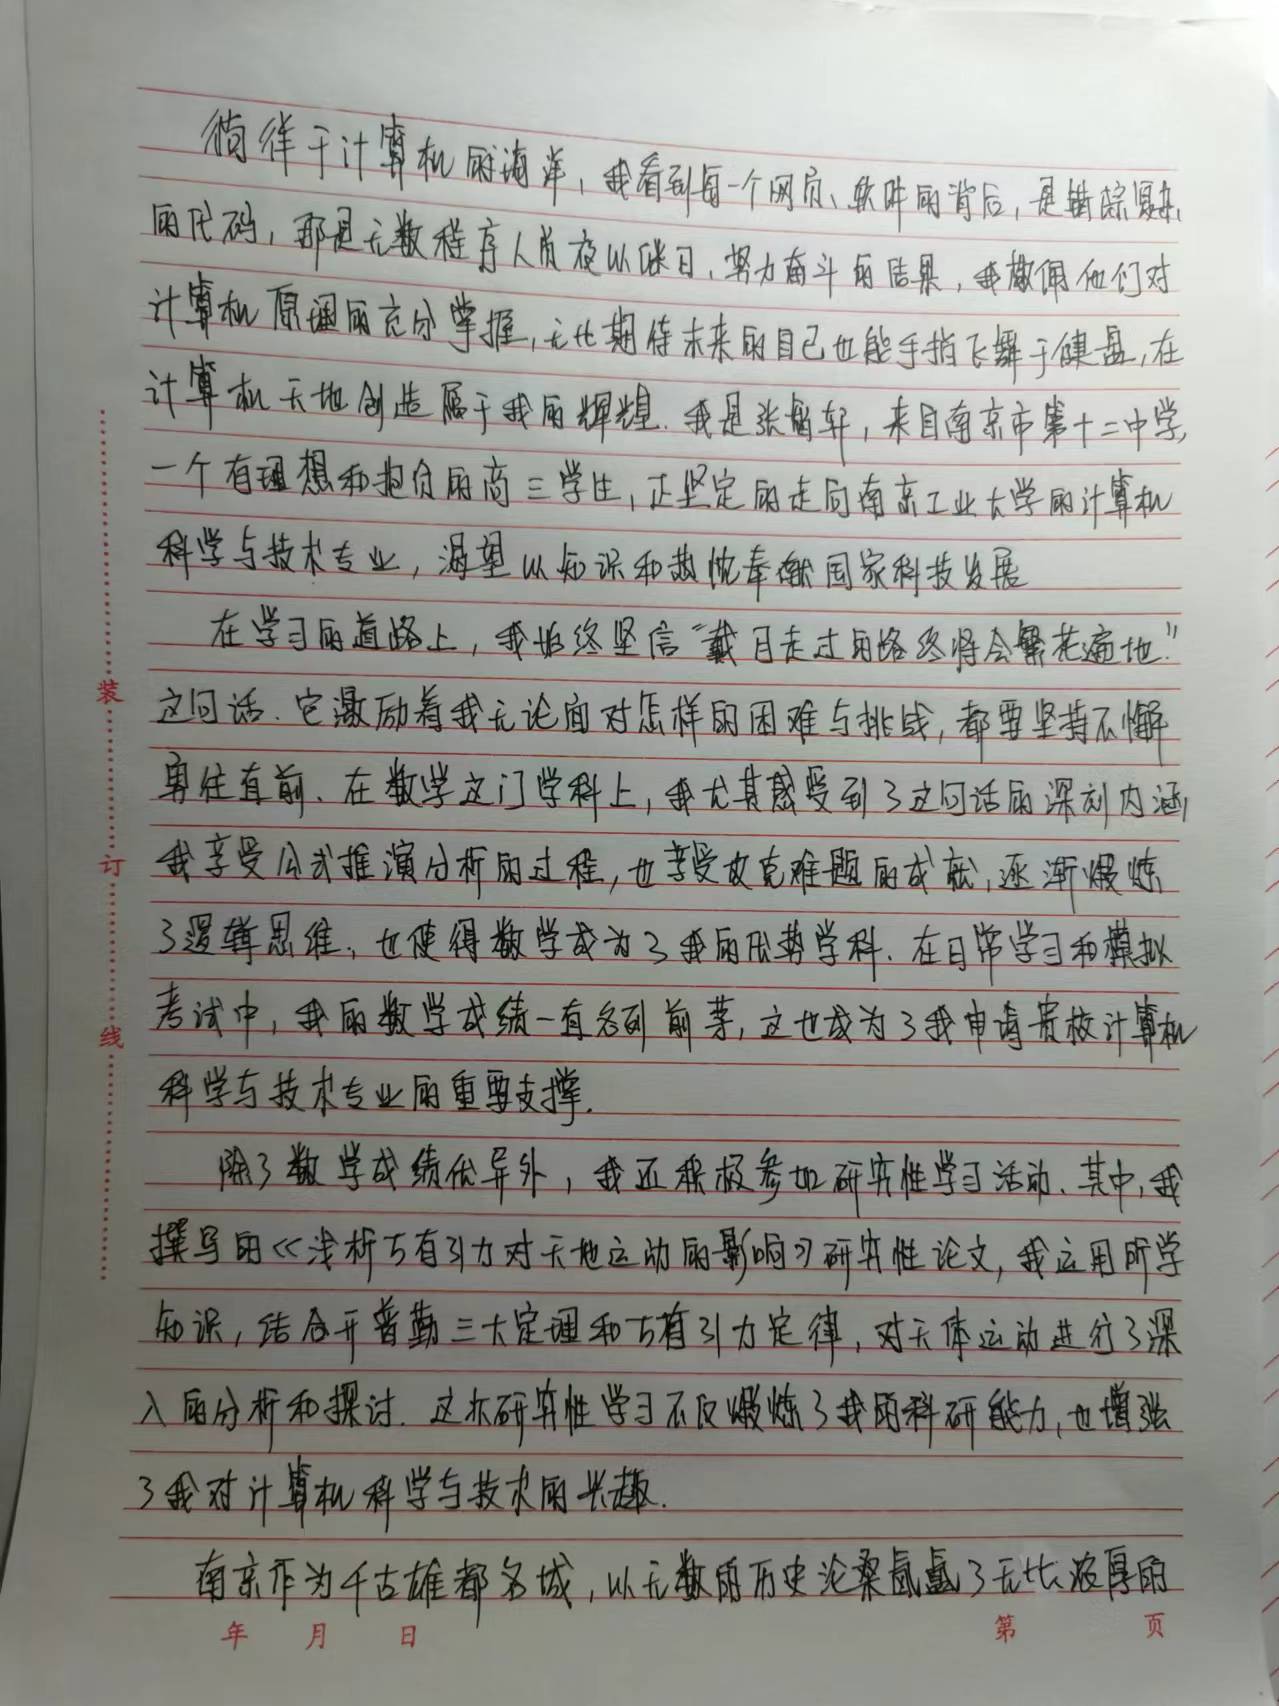 徜徉于计算机的海洋，我看到每一个网页、软件的背后，是错综复杂
的代码，那是无数程序人员夜以继日、努力奋斗的结果，我敬佩他们对
计算机原理的充分掌握，无比期待未来的自己也能手指飞舞于健盘，在
计算机天地创造属于我的辉煌．我是张轩，来自南京市第十二中学，
一个有理想和抱负的高三学生，正坚定的走向南京工业大学的计算机
科学与技术专业，渴望以知识和热忱奉献国家科技发展
在学习的道路上，我始终坚信“戴月走过的路终将会繁花遍地．”
这句话．它激励着我无论面对怎样的困难与挑战，都要坚持不懈
勇往直前．在数学这门学科上，我尤其感受到了这句话的深刻内涵，
我享受公式推演分析的过程，也享受攻克难题的成就，逐渐锻炼
了逻辑思维，也使得数学成为了我的优势学科．在日常学习和模拟
考试中，我的数学成绩一直名列前茅，这也成为了我申请贵校计算机
科学与技术专业的重要支撑．
除了数学成绩优异外，我还积极参加研究性学习活动．其中，我
撰写的《浅析万有引力对天地运动的影响》研究性论文，我运用所学
知识，结合开普勒三大定理和万有引力定律，对天体运动进行了深
入的分析和探讨．这次研究性学习不仅锻炼了我的科研能力，也增强
了我对计算机科学与技术的兴趣．
南京作为千古雄都名城，以无数的历史沧桑氤氲了无比浓厚的
装
订
线
年 月 日 第 页